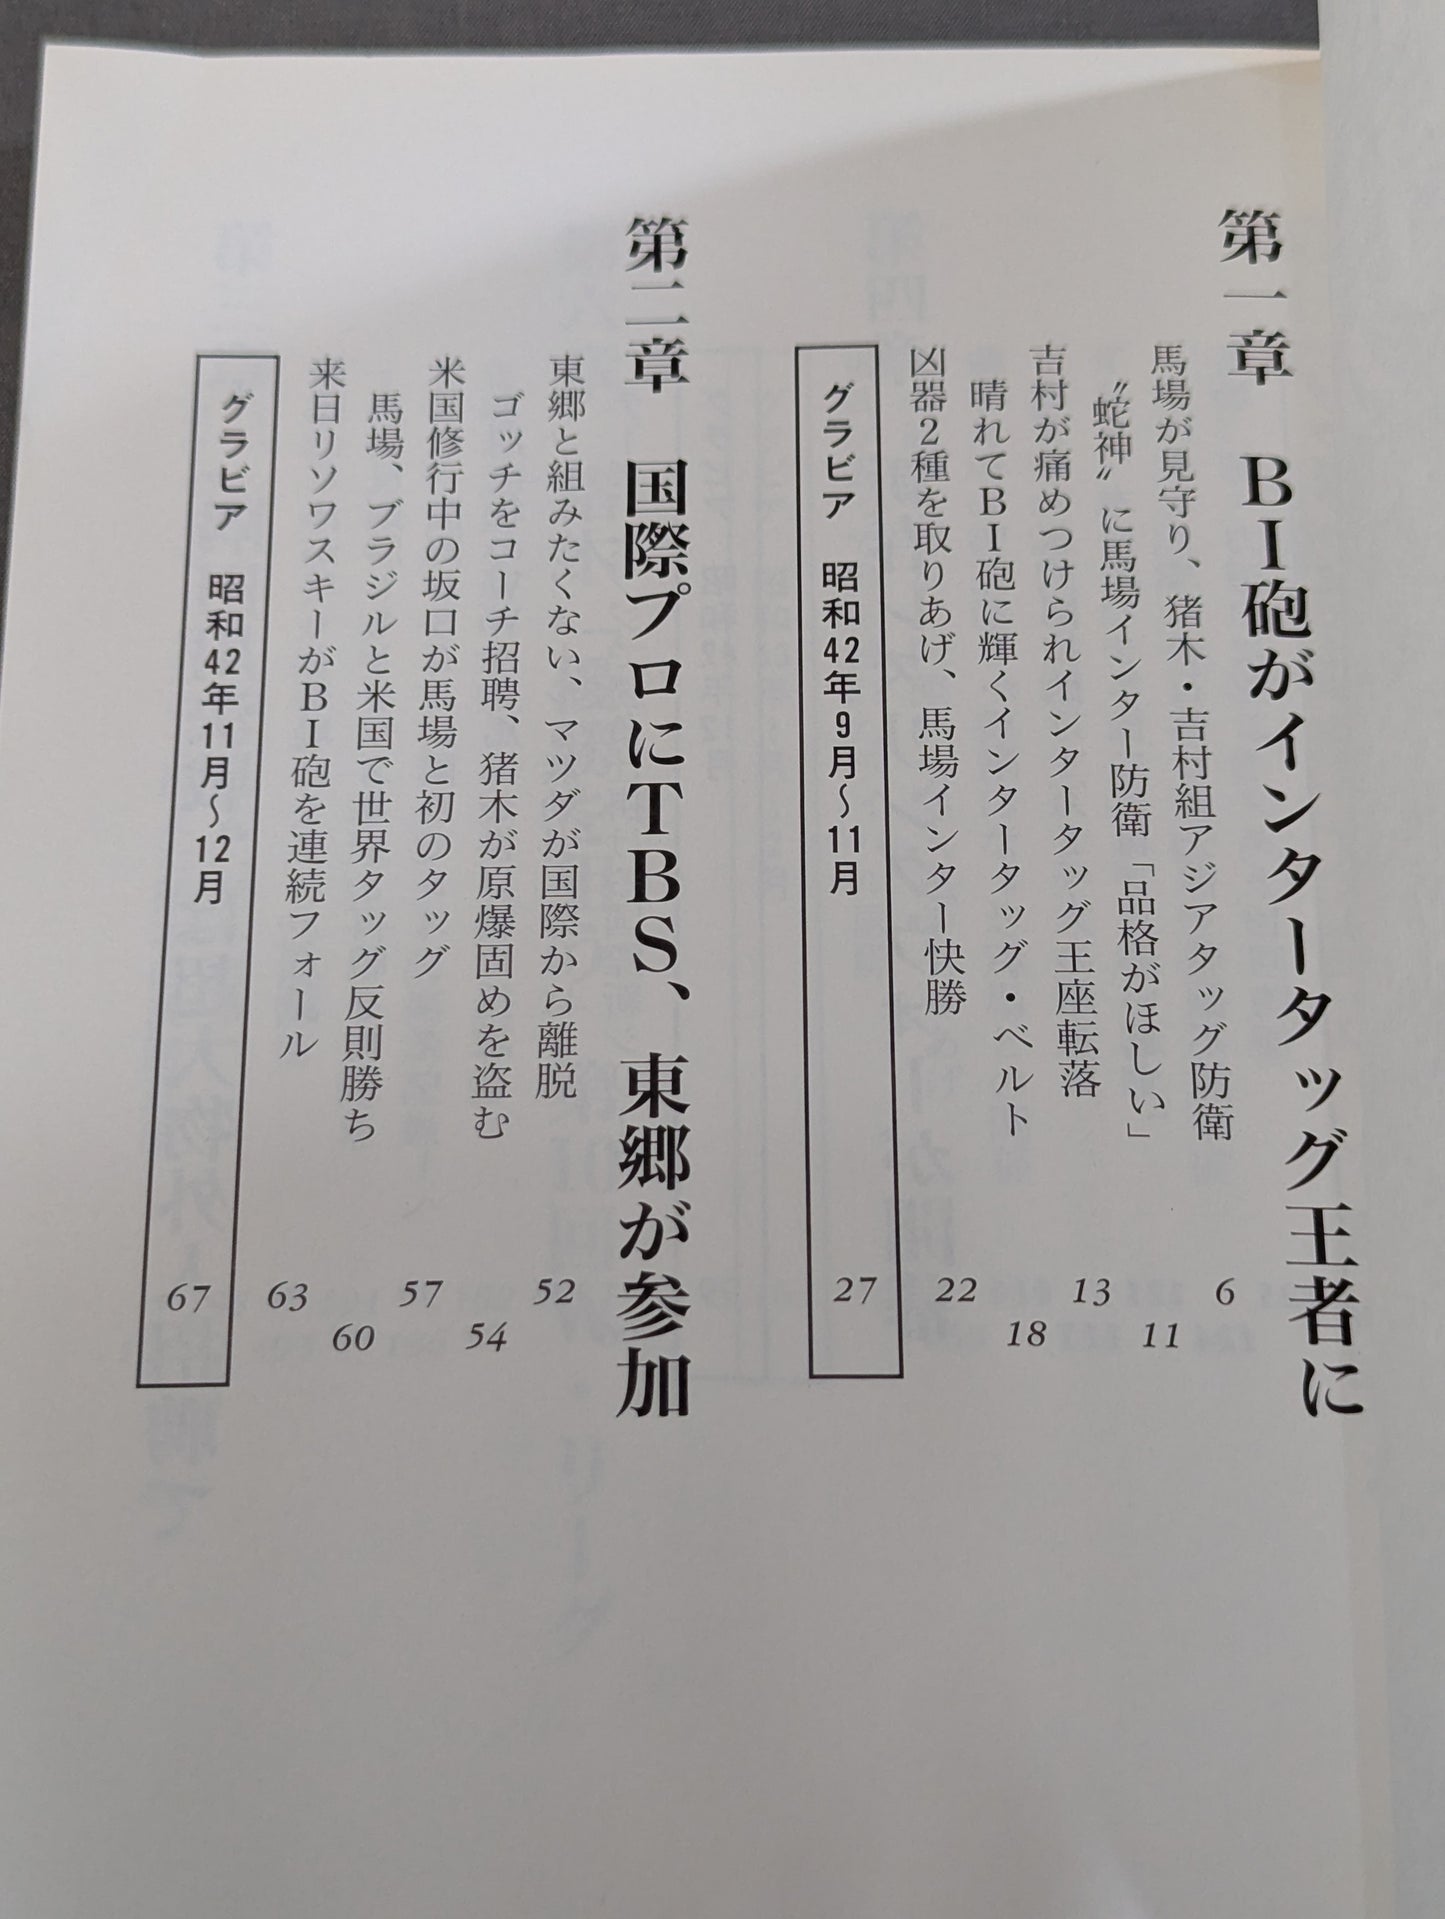 第一章 BI砲がインタータッグ王者に
馬場が見守り、猪木・吉村組アジアタッグ防衛 6
〝蛇神〟に馬場インター防衛「品格がほしい」 11
吉村が痛めつけられインタータッグ王座転落 13
晴れてBI砲に輝くインタータッグ・ベルト 18
凶器2種を取りあげ、馬場インター快勝 22
グラビア 昭和42年9月〜11月 27
第二章 国際プロにTBS、東郷が参加
東郷と組みたくない、マツダが国際から離脱 52
ゴッチをコーチ招聘、猪木が原爆固めを盗む 54
米国修行中の坂口が馬場と初のタッグ 57
馬場、ブラジルと米国で世界タッグ反則勝ち 60
来日リソワスキーがBI砲を連続フォール 63
グラビア 昭和42年11月〜12月 67